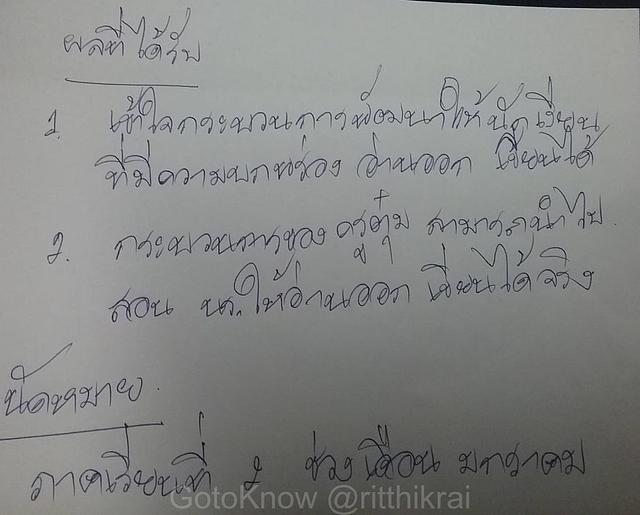 ผลที่ได้รับ
1. เข้าใจกระบวนการพัฒนาให้นักเรียน
ที่มีความบกพร่อง อ่านออก เขียนได้
2. กระบวนการของ ครูตุ๋ม สามารถนำไป
สอน นร. ให้อ่านออก เขียนได้จริง
นัดหมาย.
ภาคเรียนที่ 2 ช่วงเดือน มกราคม
GotoKnow @ritthikrai